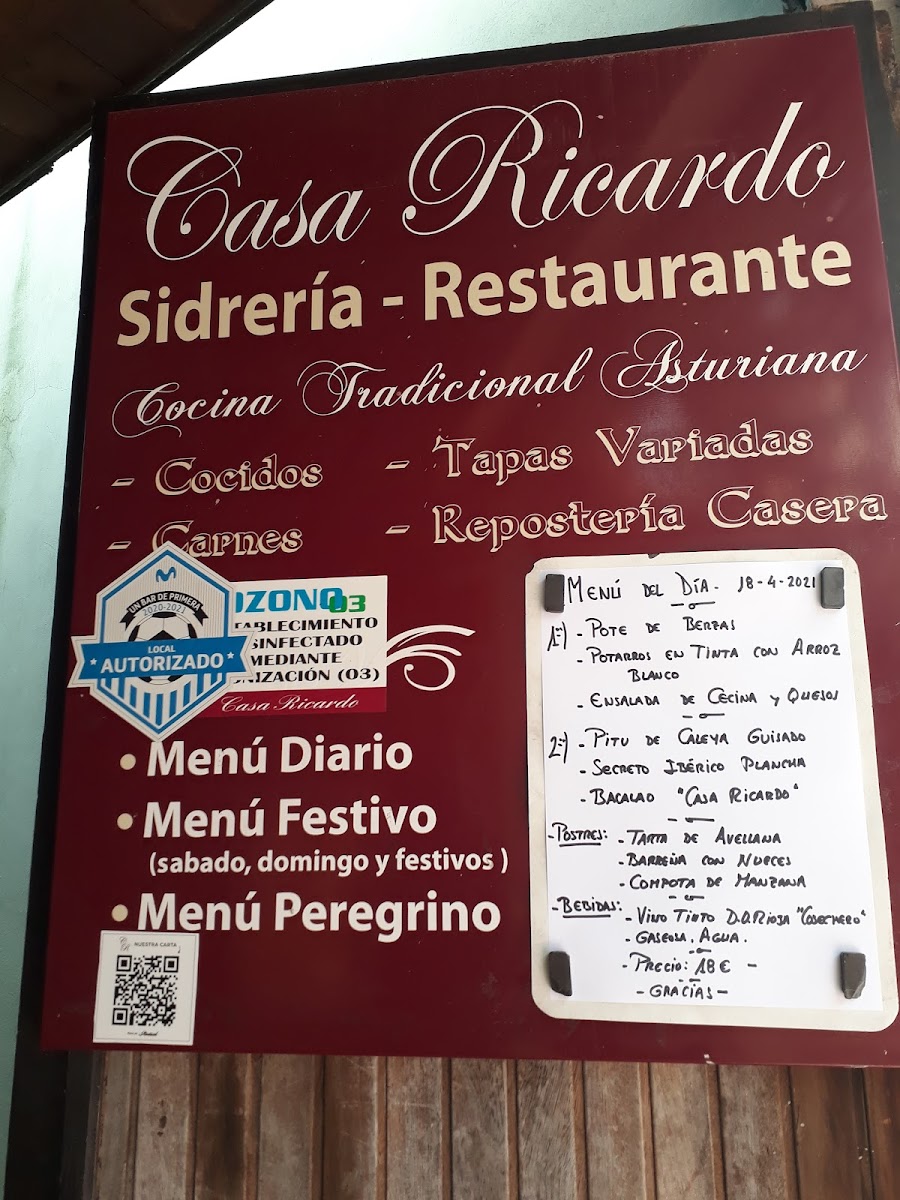 Casa Ricardo
Sidrería - Restaurante
Cocina Tradicional Asturiana
- Cocidos
- Tapas Variadas
- Carnes
- Repostería Casera
UN BAR DE PRIMERA
2020-2021
LOCAL
AUTORIZADO
OZONO 03
TABLECIMIENTO
SINFECTADO
MEDIANTE
ONIZACIÓN (03)
Casa Ricardo
• Menú Diario
• Menú Festivo
(sabado, domingo y festivos )
• Menú Peregrino
NUESTRA CARTA
MENÚ DEL DÍA - 18-4-2021
1º) - POTE DE BERZAS
- POTARROS EN TINTA CON ARROZ
BLANCO
- ENSALADA DE CECINA Y QUESOS
2º) - PITU DE CALEYA GUISADO
- SECRETO IBÉRICO PLANCHA
- BACALAO "CASA RICARDO"
- POSTRES: - TARTA DE AVELLANA
- BARREÑA CON NUECES
- COMPOTA DE MANZANA
- BEBIDAS: - VINO TINTO D.O RIOJA "COSECHERO"
- GASEOSA, AGUA.
- PRECIO: 18 € -
- GRACIAS -